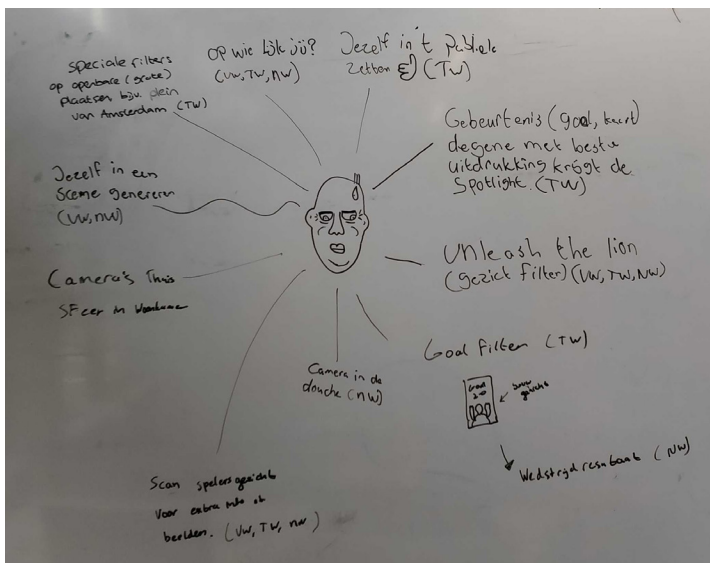 speciale filters
op openbare (grote)
plaatsen bijv. plein
van Amsterdam (TW)
op wie lijk jij?
(VW, TW, NW)
Jezelf in 't publiek
zetten (TW)
Gebeurtenis (goal, kaart)
degene met beste
uitdrukking krijgt de
Spotlight. (TW)
Jezelf in een
scene genereren
(VW, NW)
Unleash the lion
(gezicht filter) (VW, TW, NW)
Camera's Thuis
SFeer in
Goal Filter (TW)
Goal
2-0
jouw
gezicht
Camera in de
douche (NW)
Wedstrijd resultaat (NW)
Scan spelersgezicht
voor extra info of
beelden. (VW, TW, NW)